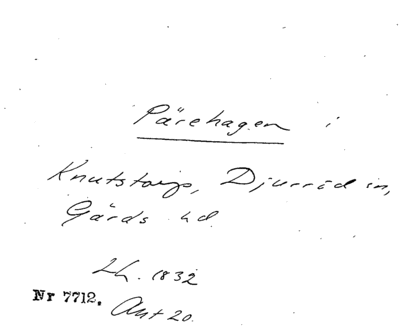 Pärehagen i
Knutstorp, Djurröd sn,
Gärds hd.
Lh. 1832
Nr 7712. Akt 20.